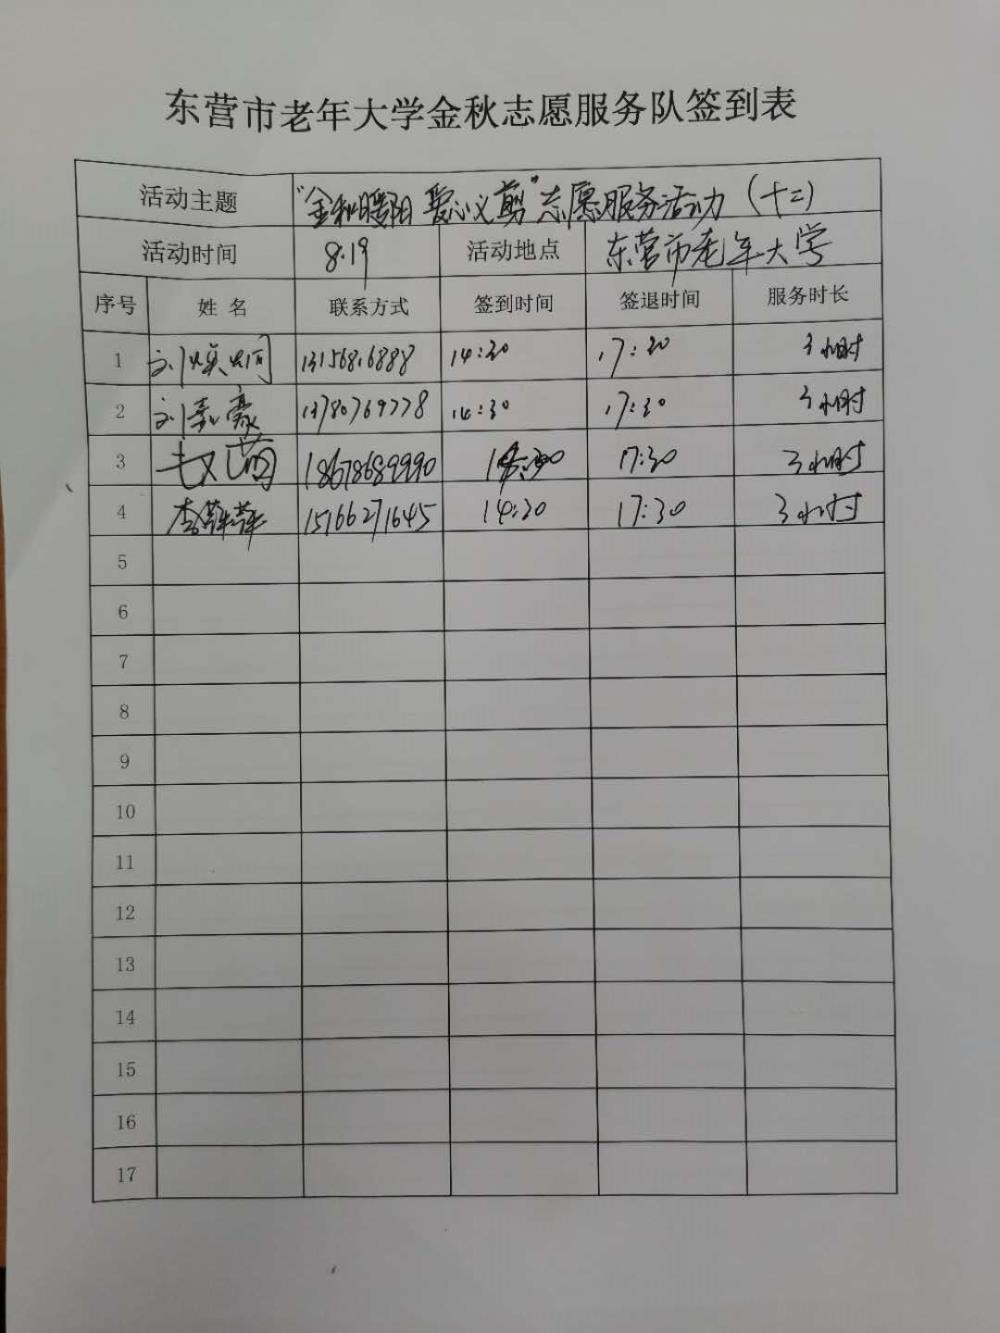 东营市老年大学金秋志愿服务队签到表
活动主题 “金秋暖阳 爱心义剪”志愿服务活动（十二）
活动时间 8.19 活动地点 东营市老年大学
序号 姓名 联系方式 签到时间 签退时间 服务时长
1 刘焕炯 13156816888 14:30 17:30 3小时
2 刘嘉豪 13780769778 14:30 17:30 3小时
3 18678689990 14:30 17:30 3小时
4 李萍萍 15166271645 14:30 17:30 3小时
5
6
7
8
9
10
11
12
13
14
15
16
17